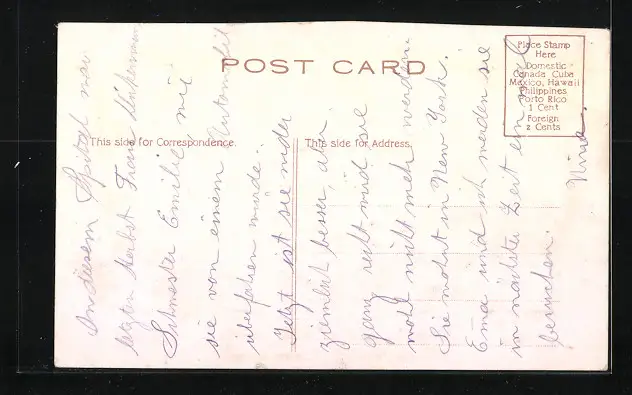 POST CARD
Place Stamp
Here
Domestic
Canada Cuba
Mexico, Hawaii
Philippines
Porto Rico
1 Cent
Foreign
2 Cents
This side for Correspondence.
This side for Address.
In diesem Spital war
letzten Herbst Frau
Schwester Emilie, wie
sie von einem Automobil
überfahren wurde.
Jetzt ist sie wieder
ziemlich besser, aber
ganz recht wird sie
wohl nicht mehr werden.
Sie wohnt in New York.
Ema und ich werden sie
in nächster Zeit einmal
besuchen.
Nina.